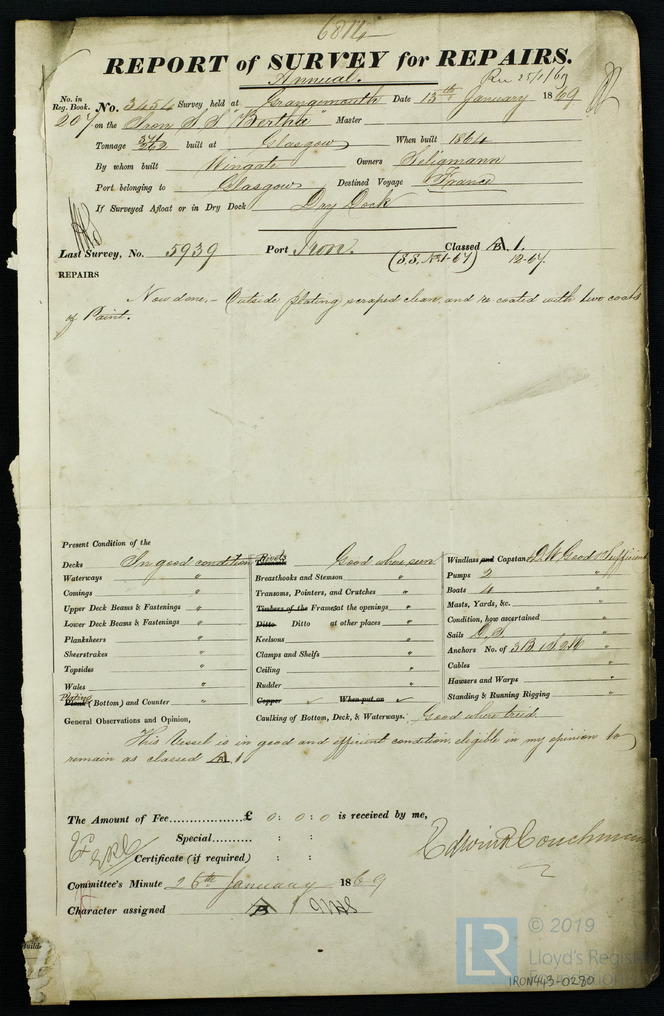 6814
REPORT of SURVEY for REPAIRS.
Annual.
Rec 25/1/69
No. in Reg. Book. No. 3454 Survey held at Grangemouth Date 13th January 1869
207 on the Iron S S "Bertha" Master
Tonnage 362 built at Glasgow When built 1864
By whom built Wingate Owners Seligmann
Port belonging to Glasgow Destined Voyage France
If Surveyed Afloat or in Dry Dock Dry Dock
Last Survey, No. 5939 Port Iron. Classed A 1.
(S.S. No1-67) 12-67.
REPAIRS
Now done,- Outside plating scraped clean, and re-coated with two coats
of Paint.
Present Condition of the
Decks In good condition
Waterways "
Comings "
Upper Deck Beams & Fastenings "
Lower Deck Beams & Fastenings "
Planksheers "
Sheerstrakes "
Topsides "
Wales "
Plating
Plank (Bottom) and Counter "
Rivets
Treenails Good where seen
Breasthooks and Stemson "
Transoms, Pointers, and Crutches "
Timbers of the Frames at the openings "
Ditto Ditto at other places "
Keelsons "
Clamps and Shelfs "
Ceiling "
Rudder "
Copper When put on
Caulking of Bottom, Deck, & Waterways. Good where tried.
Windlass and Capstan P.W. Good & Sufficient
Pumps 2 "
Boats 4 "
Masts, Yards, &c. "
Condition, how ascertained "
Sails "
Anchors No. of 3B 1S 2K "
Cables "
Hawsers and Warps "
Standing & Running Rigging "
General Observations and Opinion,
This Vessel is in good and efficient condition, eligible in my opinion to
remain as classed A 1
The Amount of Fee £ 0 : 0 : 0 is received by me,
Special : :
Certificate (if required) : :
Edwin R Couchman
Committee's Minute 26th January 1869
Character assigned A 1
© 2019
LR Lloyd's Register
IRON443-0280